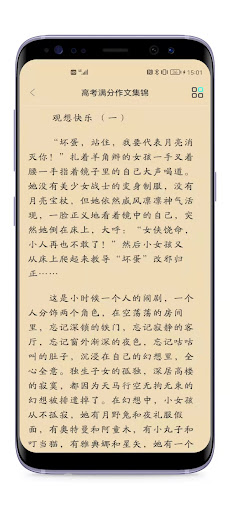 15:01
高考满分作文集锦
观想快乐（一）
“坏蛋，站住，我要代表月亮消
灭你！”扎着羊角辫的女孩一手叉着
腰一手指着镜子里的自己大声喝道。
她没有美少女战士的变身制服，没有
月亮宝杖，但她依然威风凛凛神气活
现，一脸正义地看着镜中的自己，突
然她倒在床上，大呼：“女侠饶命，
小人再也不敢了！”然后小女孩又
从床上爬起来教导“坏蛋”改邪归
正……
这是小时候一个人的闹剧，一个
人分饰两个角色，在空荡荡的房间
里，忘记深锁的铁门，忘记寂静的客
厅，忘记窗外渐深的夜色，忘记咕咕
叫的肚子，沉浸在自己的幻想里，全
心全意。独生子女的孤独，深居高楼
的寂寞，都因为天马行空无拘无束的
幻想被排遣掉了。在幻想中，小女孩
从不孤寂，她有月野兔和夜礼服假
面，有奥特曼和阿童木，有小丸子和
叮当猫，有雅典娜和星矢，她有一个